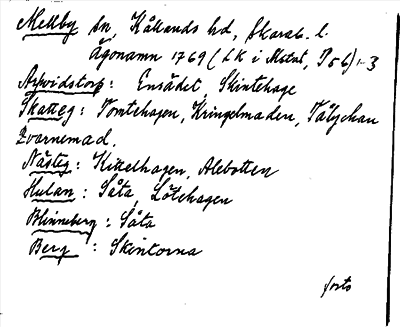 Mellby sn, Kållands hd, Skarab. l.
Ägonamn 1769 (LK i Mstut, P 56) 1-3
Arvidstorp: Ensådet, Skintehage
Skatteg: Tomtehagen, Kringelmaden,
Qvarnemad.
Nästeg: Kikkelhagen, Alebotten
Hulan: Såta, Lötehagen
Blinneberg: Såta
Berg: Skintorna
forts